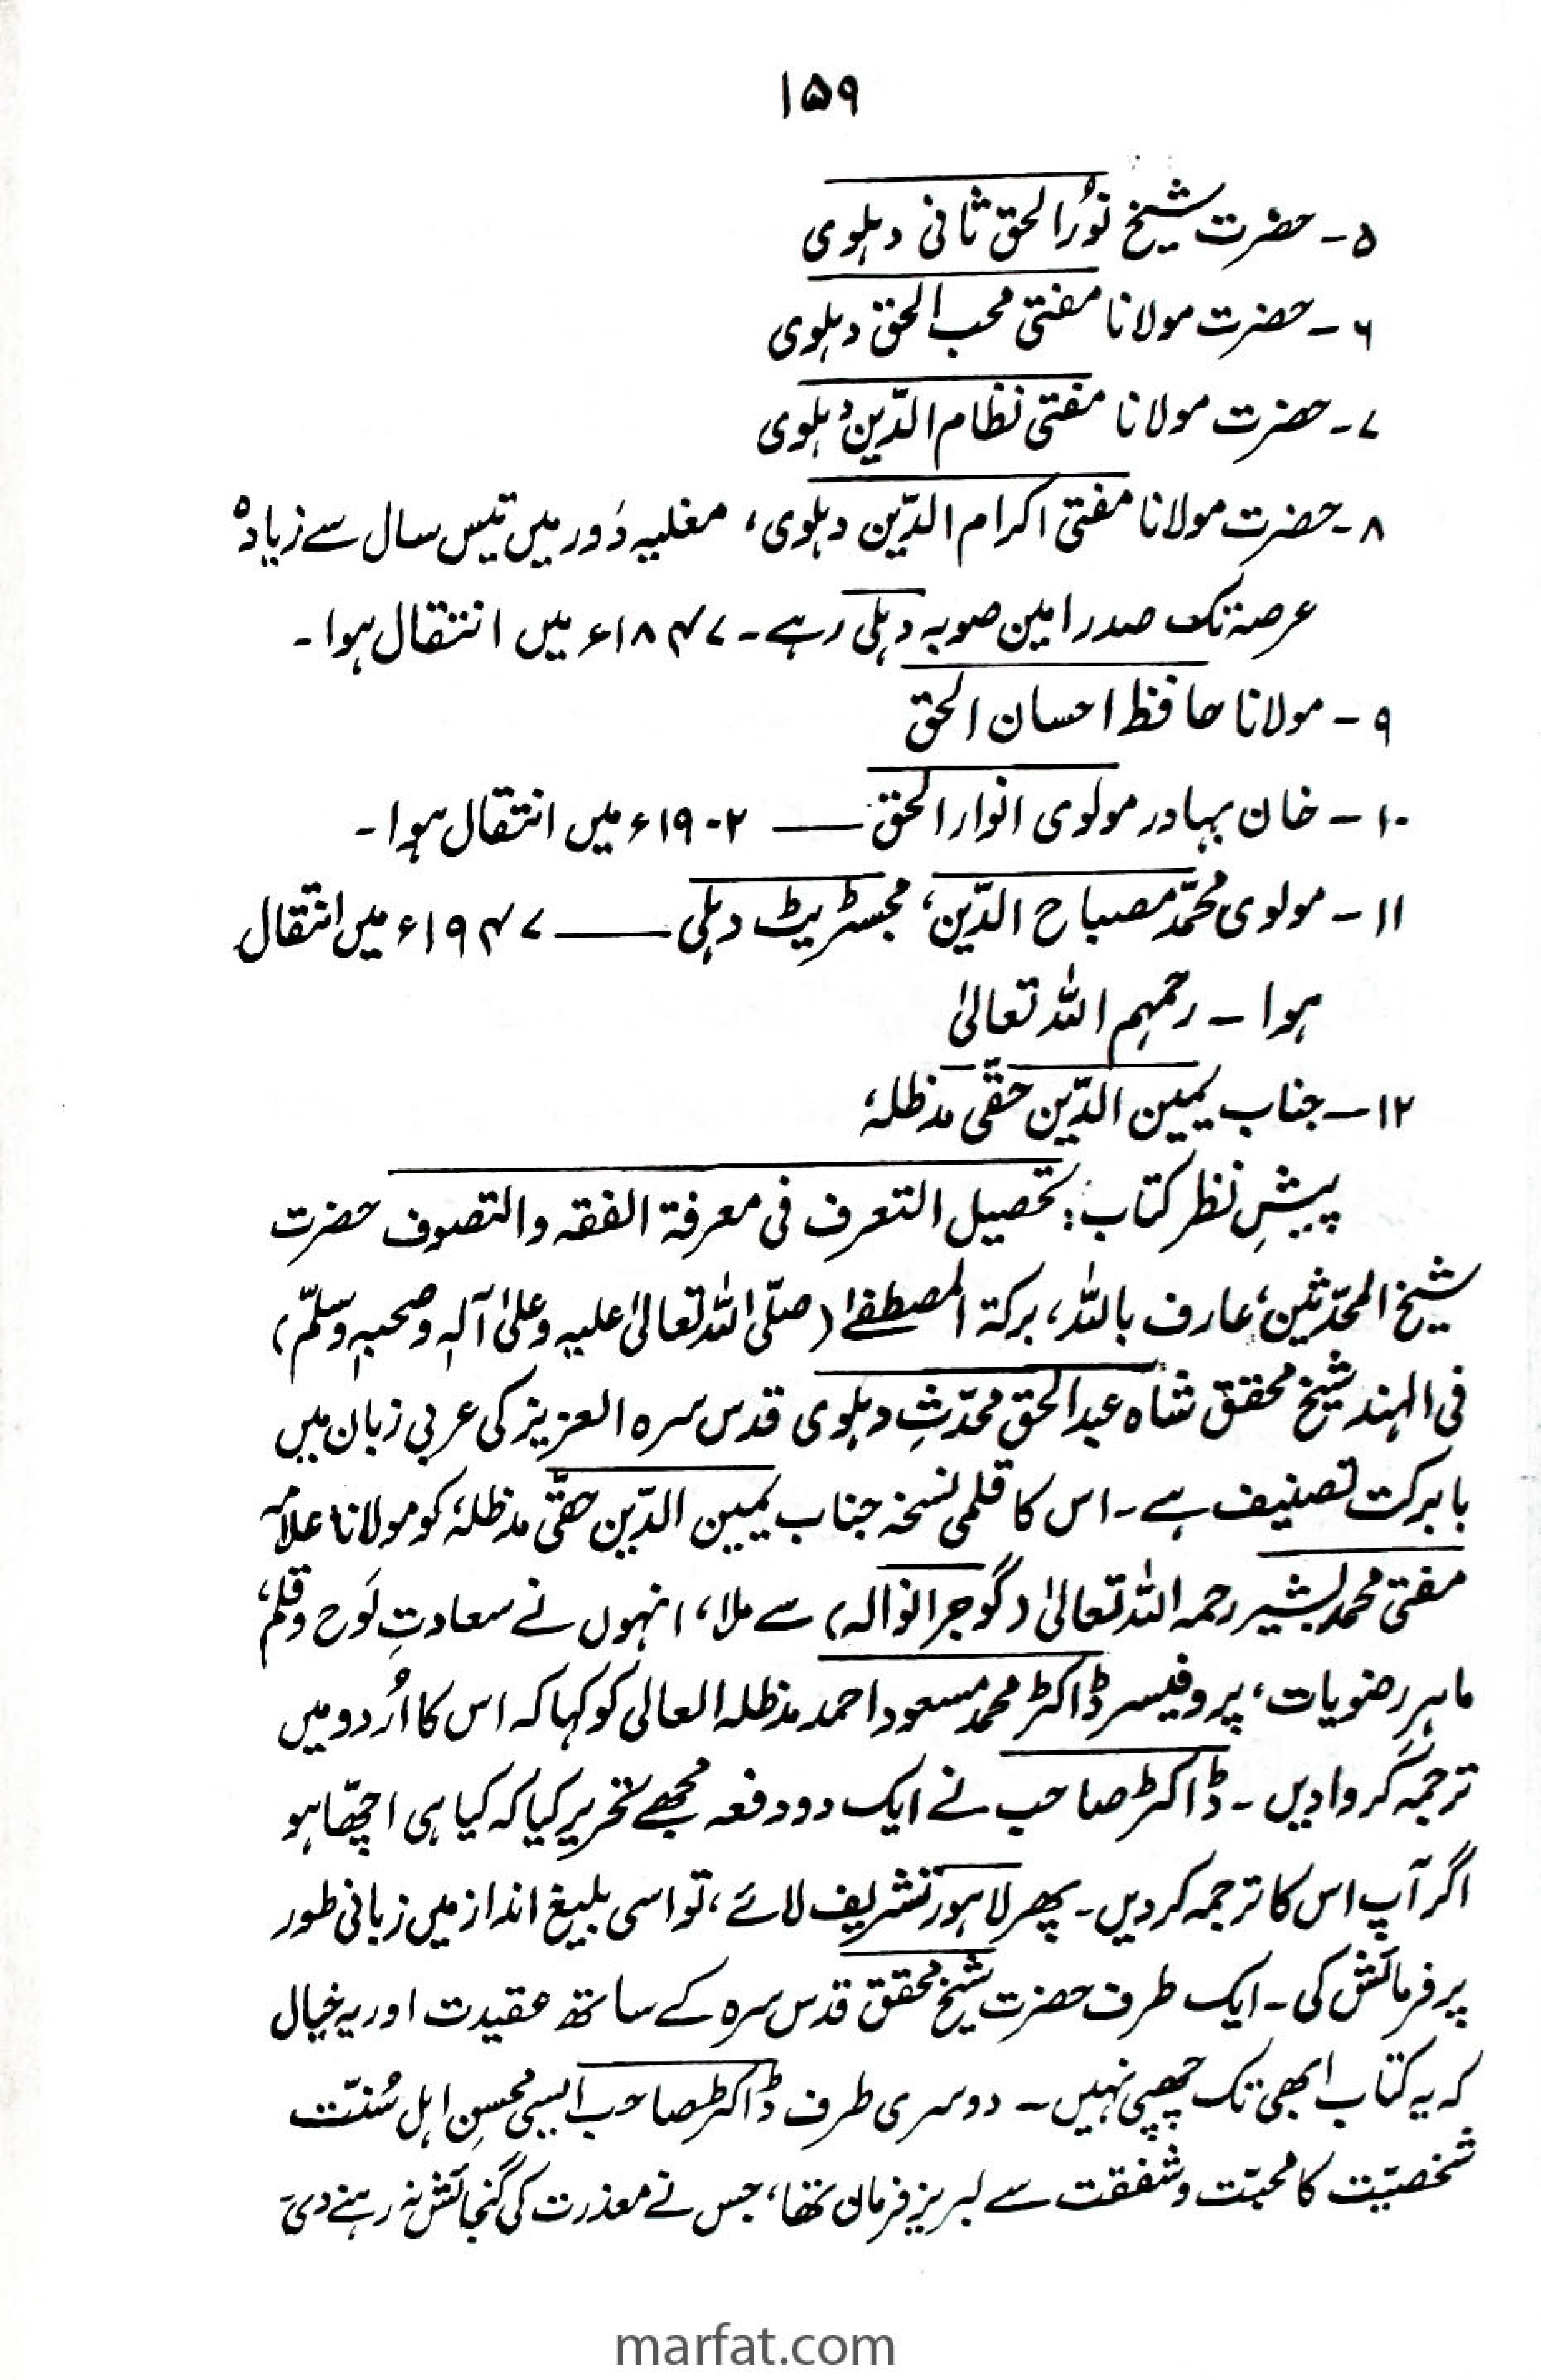 ۱۵۹
۵ - حضرت شیخ نورُ الحق ثانی دہلوی
۶ - حضرت مولانا مفتی محب الحق دہلوی
۷ - حضرت مولانا مفتی نظام الدّین دہلوی
۸ - حضرت مولانا مفتی اکرام الدّین دہلوی، مغلیہ دَور میں تیس سال سے زیادہ
عرصہ تک صدر امین صوبہ دہلی رہے۔ ۱۸۴۷ء میں انتقال ہوا۔
۹ - مولانا حافظ احسان الحق
۱۰ - خان بہادر مولوی انوار الحق —— ۱۹۰۲ء میں انتقال ہوا۔
۱۱ - مولوی محمّد مصباح الدّین، مجسٹریٹ دہلی —— ۱۹۴۷ء میں انتقال
ہوا ۔ رحمہم اللہ تعالیٰ
۱۲ - جناب یمین الدّین حقّی مدظلہٗ
پیشِ نظر کتاب: تحصیل التعرف فی معرفۃ الفقہ والتصوف حضرت
شیخ المحدّثین، عارف باللہ، برکۃ المصطفےٰ (صلّی اللہ تعالیٰ علیہ وعلیٰ آلہٖ وصحبہٖ وسلّم)
فی الہند شیخ محقق شاہ عبدالحق محدّثِ دہلوی قدس سرہ العزیز کی عربی زبان میں
بابرکت تصنیف ہے۔ اس کا قلمی نسخہ جناب یمین الدّین حقّی مدظلہٗ کو مولانا علامہ
مفتی محمد بشیر رحمہ اللہ تعالیٰ (گوجرانوالہ) سے ملا، انہوں نے سعادتِ لَوح و قلم،
ماہرِ رضویات، پروفیسر ڈاکٹر محمد مسعود احمد مدظلہ العالی کو کہا کہ اس کا اُردو میں
ترجمہ کروا دیں ۔ ڈاکٹر صاحب نے ایک دو دفعہ مجھے تحریر کیا کہ کیا ہی اچھّا ہو
اگر آپ اس کا ترجمہ کر دیں۔ پھر لاہور تشریف لائے، تو اسی بلیغ انداز میں زبانی طور
پر فرمائش کی۔ ایک طرف حضرت شیخ محقق قدس سرہ کے ساتھ عقیدت اور یہ خیال
کہ یہ کتاب ابھی تک چھپی نہیں۔ دوسری طرف ڈاکٹر صاحب ایسی محسنِ اہل سُنّت
شخصیّت کا محبّت و شفقت سے لبریز فرمان تھا، جس نے معذرت کی گنجائش نہ رہنے دی۔
marfat.com